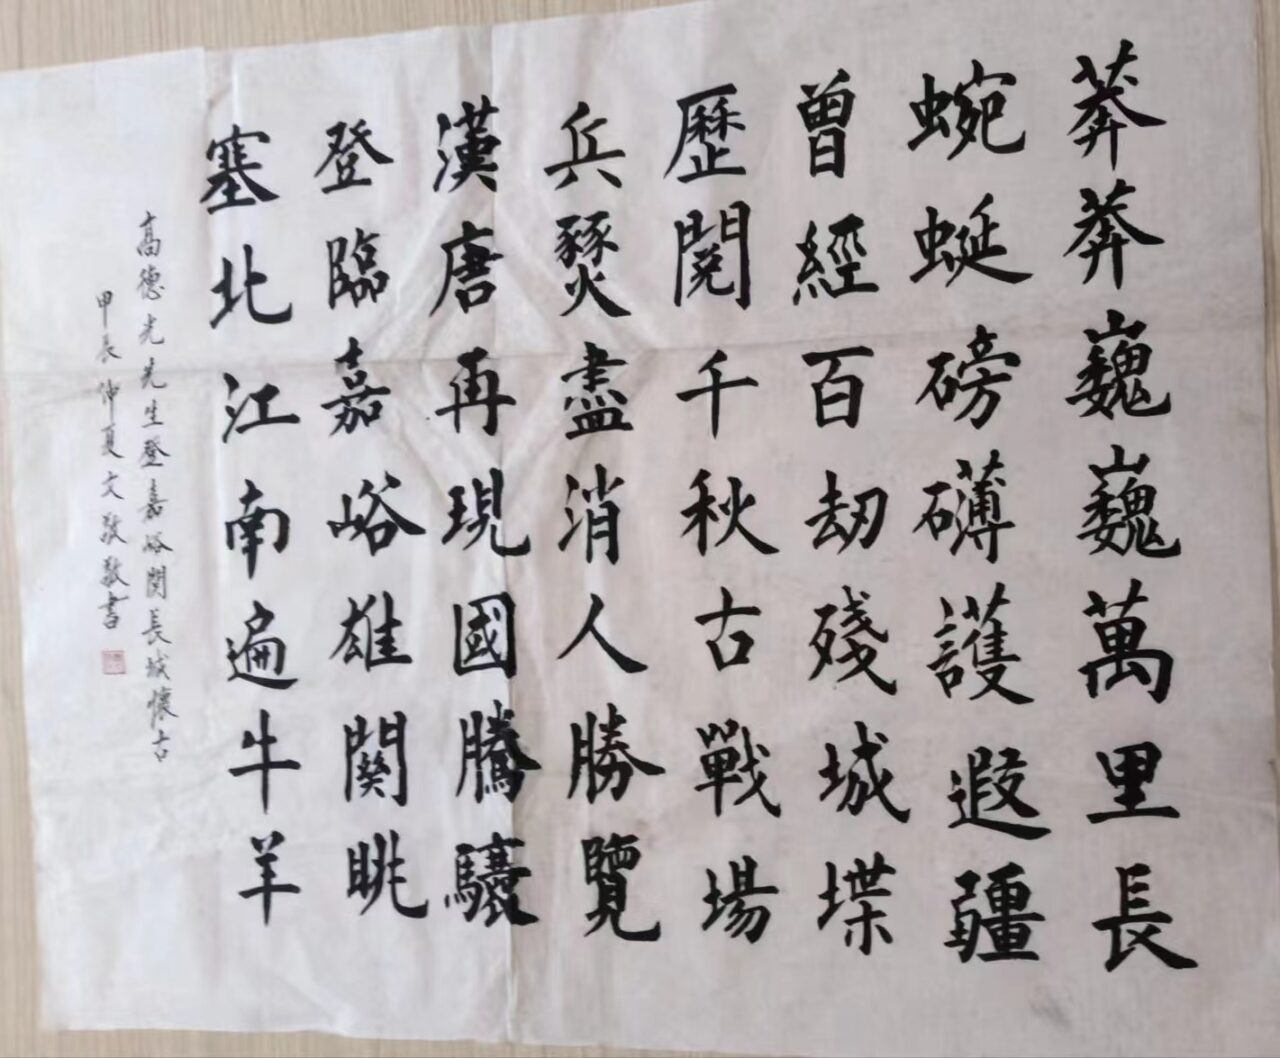 莽莽巍巍萬里長
蜿蜒磅礴護遐疆
曾經百劫殘城堞
歷閱千秋古戰場
兵燹盡消人勝覽
漢唐再現國騰驤
登臨嘉峪雄關眺
塞北江南遍牛羊
高德光先生登嘉峪関長城懷古
甲辰仲夏文敬敬書